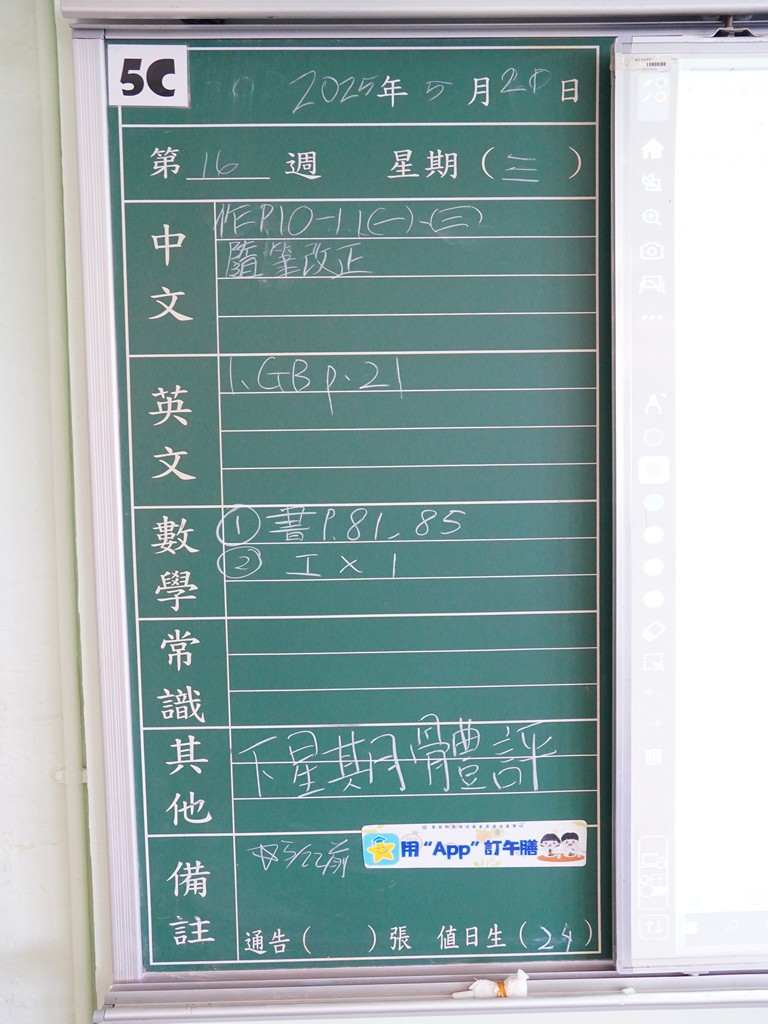 5C
2025年5月21日
第16週 星期(三)
中文
作P.10-11(一)、(三)
隨筆改正
英文
1. GB p.21
數學
① 書P.81, 85
② 工×1
常識
其他
下星期體評
備註
5/22前
用“App”訂午膳
通告( )張 值日生(24)